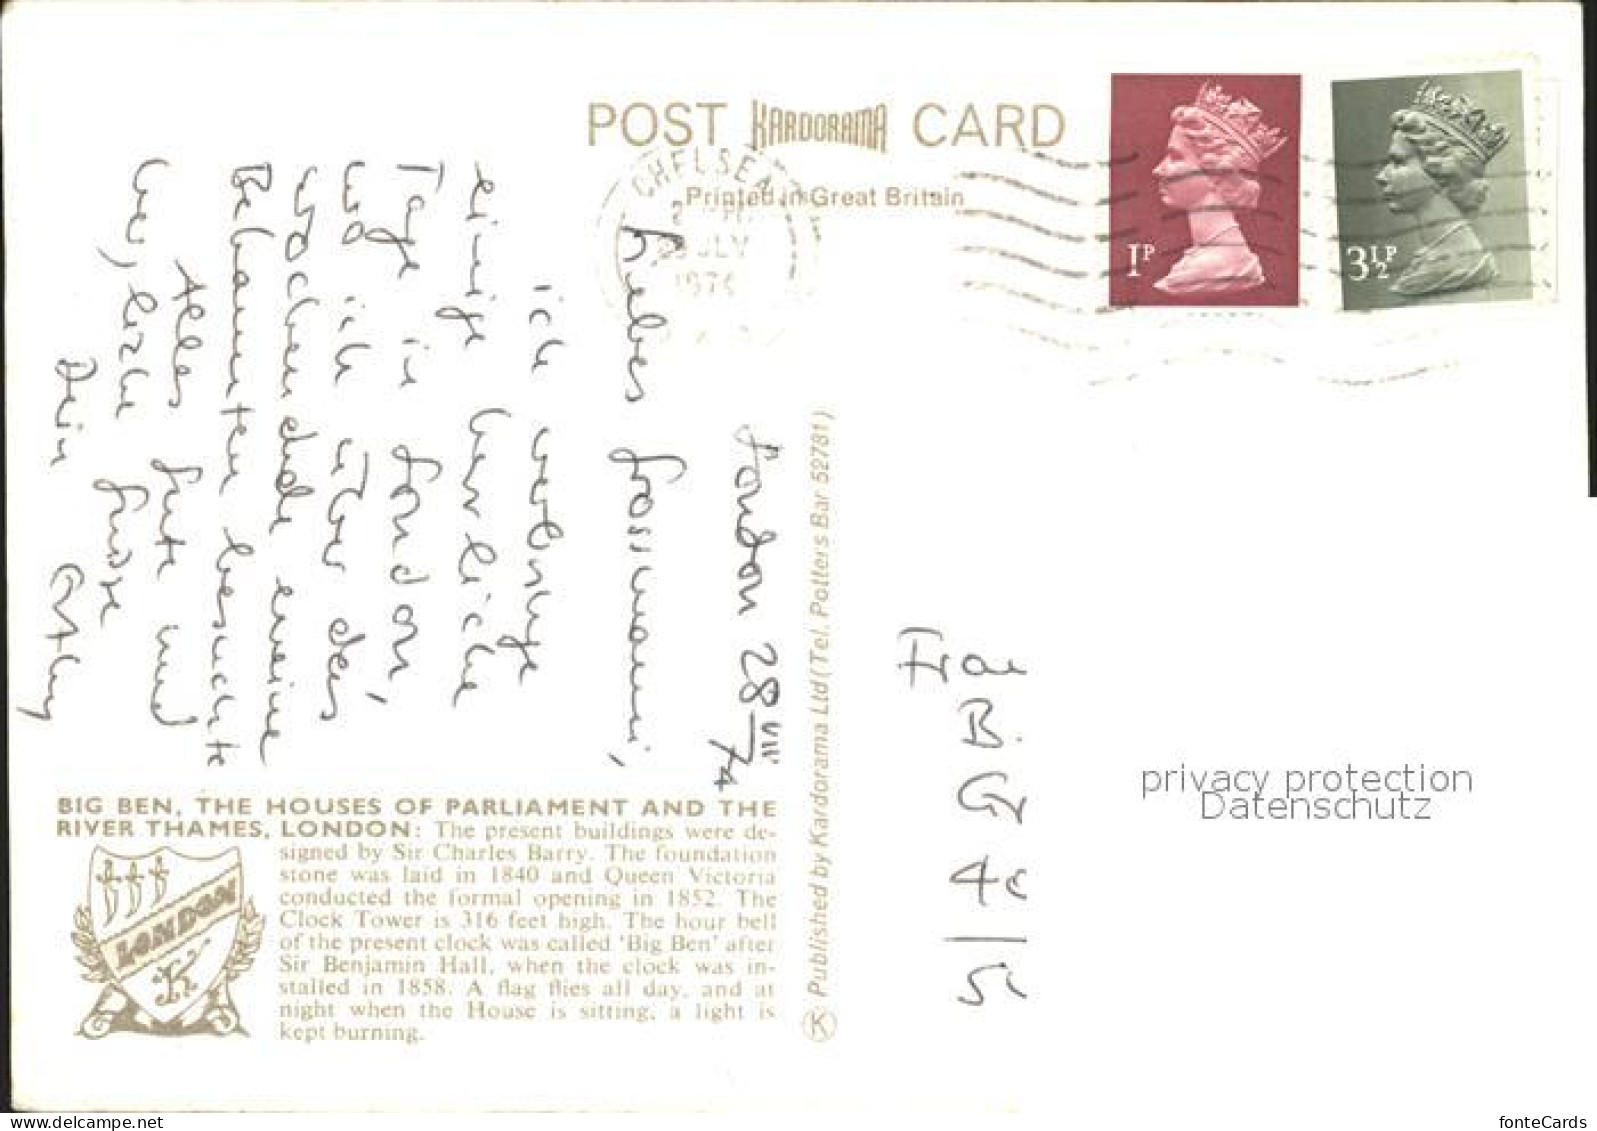 POST KARDORAMA CARD
Printed in Great Britain
CHELSEA
JLY
1974
1P
3½P
London 28 VII 74
Liebes Grossmami,
ich verbringe
einige herrliche
Tage in London,
wo ich über das
Wochenende meine
Bekannten besuchte
Alles Gute und
herzliche Grüsse
Dein
BIG BEN, THE HOUSES OF PARLIAMENT AND THE
RIVER THAMES, LONDON: The present buildings were de-
signed by Sir Charles Barry. The foundation
stone was laid in 1840 and Queen Victoria
conducted the formal opening in 1852. The
Clock Tower is 316 feet high. The hour bell
of the present clock was called 'Big Ben' after
Sir Benjamin Hall, when the clock was in-
stalled in 1858. A flag flies all day, and at
night when the House is sitting, a light is
kept burning.
LONDON
K
K Published by Kardorama Ltd (Tel. Potters Bar 52781)
B.
privacy protection
Datenschutz
fonteCards